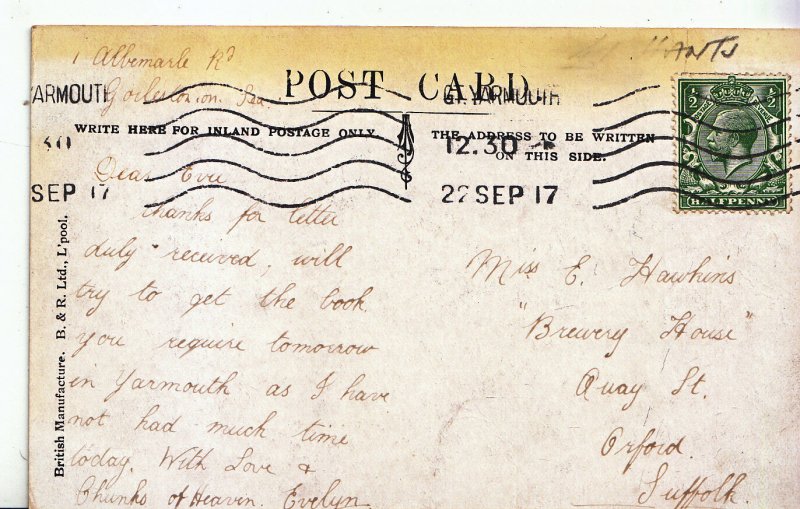 HANTS
1 Albemarle Rd
Gorleston on Sea
POST CARD
YARMOUTH
GT. YARMOUTH
WRITE HERE FOR INLAND POSTAGE ONLY.
THE ADDRESS TO BE WRITTEN
ON THIS SIDE.
30
12.30
SEP 17
22 SEP 17
1/2 1/2
HALFPENNY
Dear Evie
Thanks for letter
duly received, will
try to get the book
you require tomorrow
in Yarmouth as I have
not had much time
today. With Love &
Chunks of Heaven. Evelyn
Miss E. Hawkins
"Brewery House"
Quay St.
Orford.
Suffolk.
British Manufacture. B. & R. Ltd., L'pool.